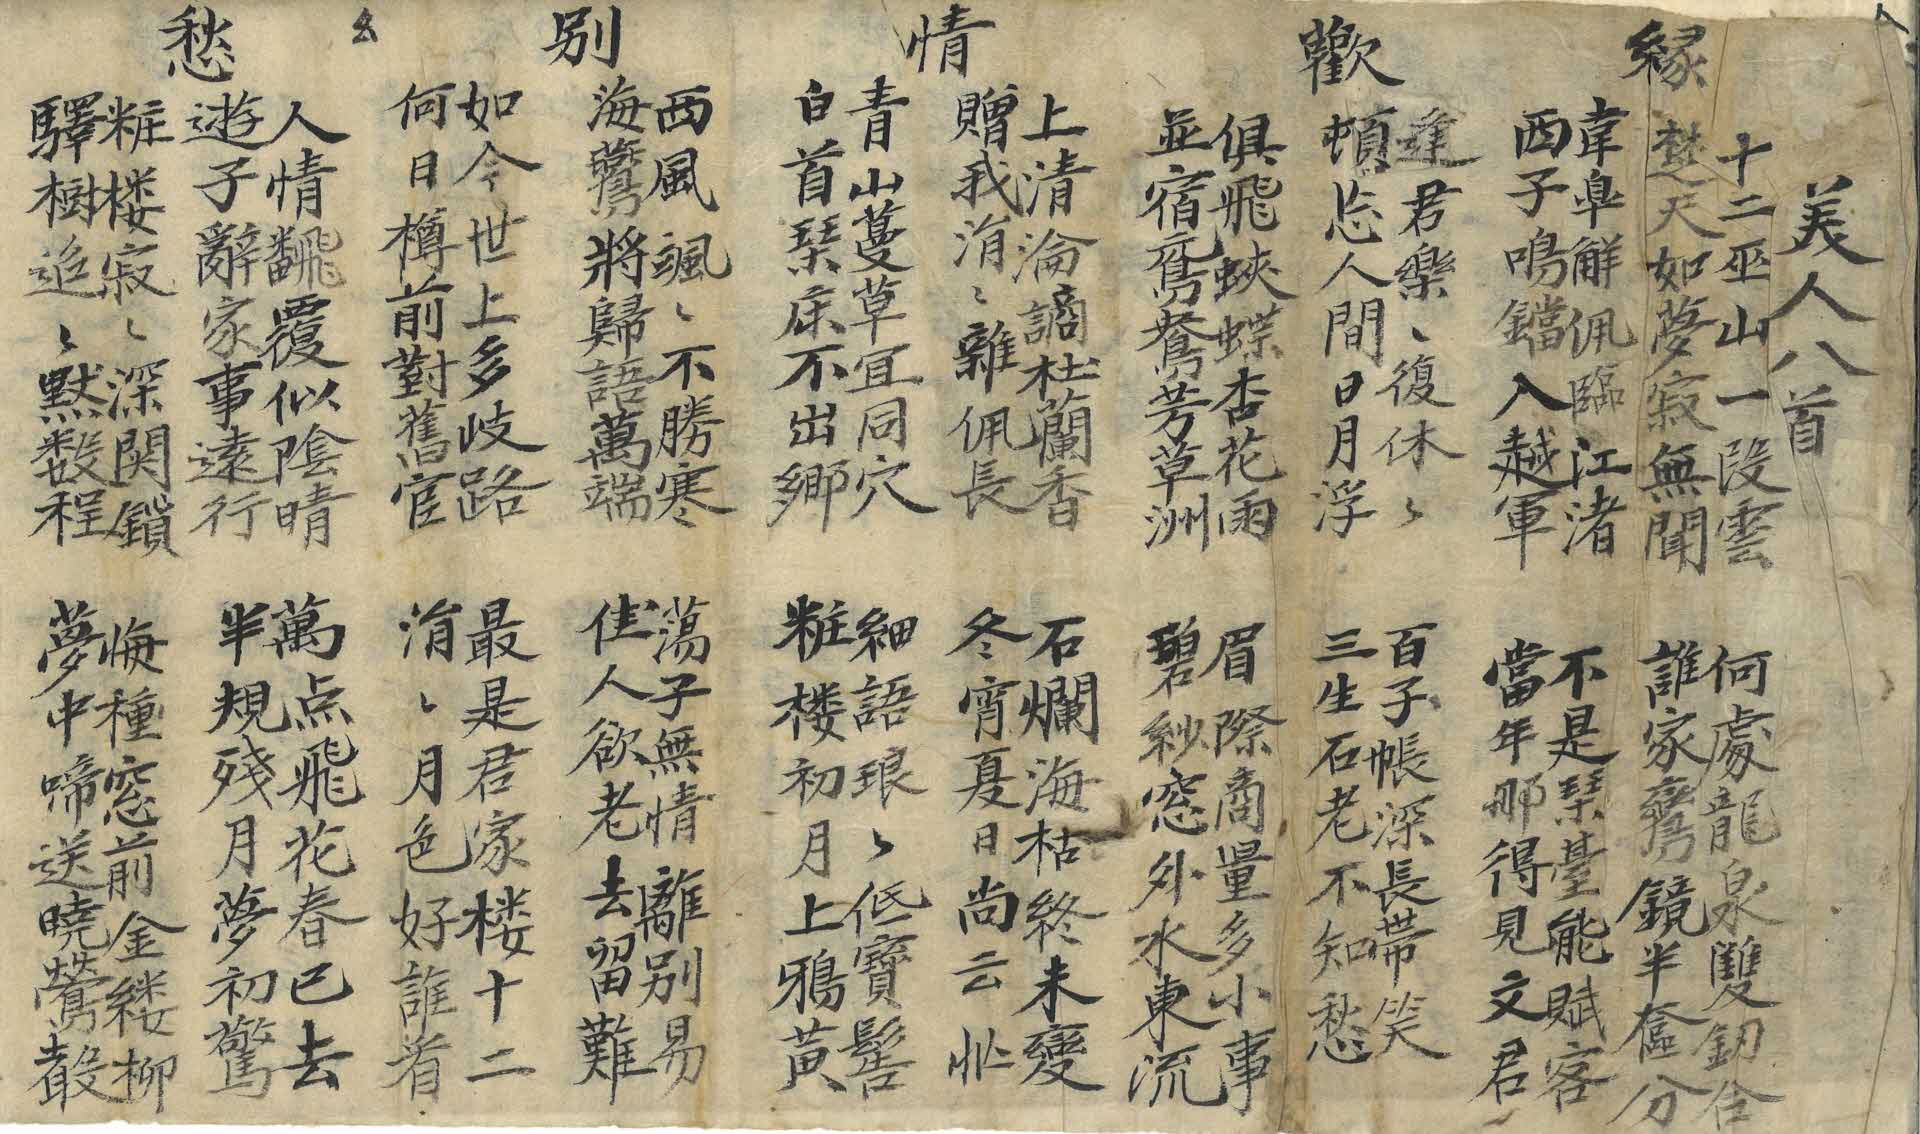 美人八首
緣
十二巫山一段雲
楚天如夢寂無聞
何處龍泉雙釰合
誰家鸞鏡半奩分
韋皐解佩臨江渚
西子鳴鐺入越軍
不是琹臺能賦客
當年那得見文君
歡
逢君樂〻復休〻
頓忘人間日月浮
百子帳深長帶笑
三生石老不知愁
俱飛蛺蝶杏花雨
並宿鴛鴦芳草洲
眉際商量多小事
碧紗窓外水東流
情
上清淪謫杜蘭香
贈我涓〻雜佩長
石爛海枯終未變
冬宵夏日尚云忙
青山蔓草宜同穴
白首琹床不出鄉
細語琅〻低寶髻
粧楼初月上鴉黃
别
西風颯〻不勝寒
海鷰將歸語萬端
蕩子無情離别易
佳人欲老去留難
如今世上多歧路
何日樽前對舊官
最是君家楼十二
涓〻月色好誰看
愁
人情飜覆似陰晴
遊子辭家事遠行
萬点飛花春已去
半規殘月夢初驚
粧楼寂〻深関鎖
驛樹迢〻默数程
悔種窓前金縷柳
夢中啼送曉鶯聲